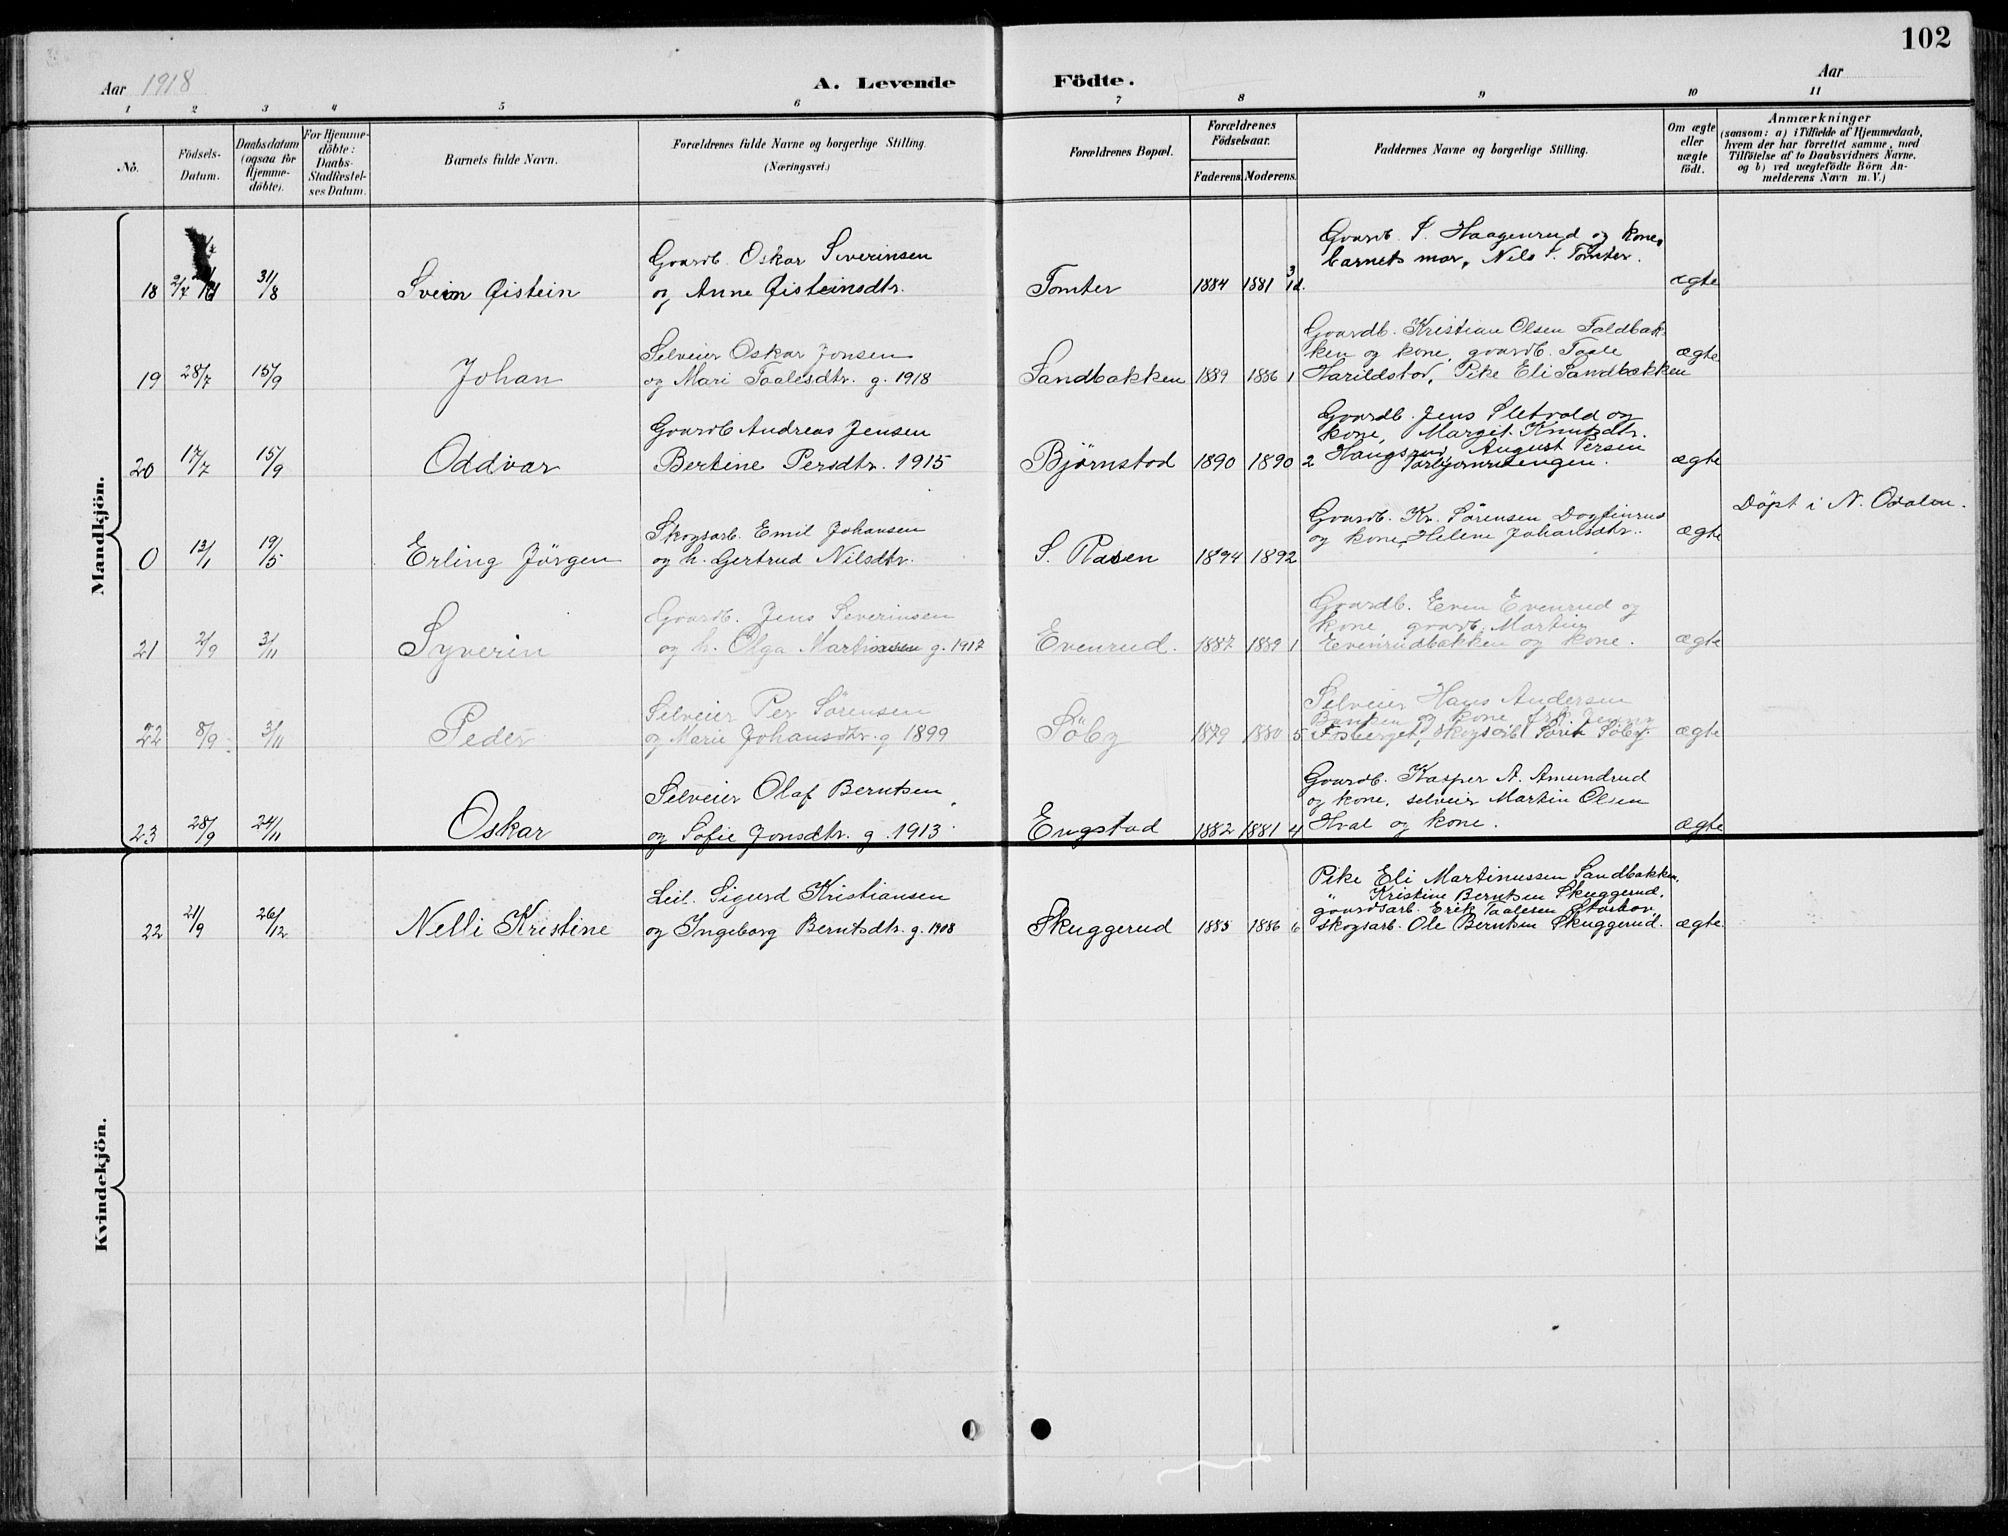 102
Aar 1918
A. Levende Födte.
Aar
1 2 3 4 5 6 7 8 9 10 11
No.
Födsels-Datum.
Daabsdatum (ogsaa for Hjemme-döbte).
For Hjemme-döbte: Daabs-Stadfæstel-ses Datum.
Barnets fulde Navn.
Forældrenes fulde Navne og borgerlige Stilling.
(Næringsvei.)
Forældrenes Bopæl.
Forældrenes Födselsaar.
Faderens. Moderens.
Faddernes Navne og borgerlige Stilling.
Om ægte eller uægte födt.
Anmærkninger
(saasom: a) i Tilfælde af Hjemmedaab, hvem der har forrettet samme, med Tilföielse af to Daabsvidners Navne, og b) ved uægtefödte Börn An-melderens Navn m. V.)
Mandkjön.
18 2/7 31/8 Svein Øistein
Gaardb. Oskar Severinsen
og Anne Øisteinsdtr.
Tomter 1884 1881 3 1d.
Gaardb. S. Haagenrud og kone,
barnets mor, Nils S. Tomter.
ægte
19 28/7 15/9 Johan
Selveier Oskar Jonsen
og Mari Taalesdtr. g. 1918
Sandbakken 1889 1886 1
Gaardb. Kristian Olsen Faldbak-
ken og kone, gaardb. Taale
Harildstad, Pike Eli Sandbakken
ægte
20 17/7 15/9 Oddvar
Gaardb Andreas Jensen
Bertine Persdtr. 1915
Bjørnstad 1890 1890 2
Gaardb. Jens Sletvold og
kone, Margit Knutsdtr.
Haugsrud, August Persen
Torbjørnrudengen.
ægte
0 13/1 19/5 Erling Jörgen
Skogsarb. Emil Johansen
og h. Gertrud Nilsdtr.
S. Rasen 1894 1892
Gaardb. Kr. Sörensen Dagfinrud
og kone, Helene Johansdtr.
ægte
Döpt i N. Odalen.
21 2/9 3/11 Syverin
Gaardb. Jens Severinsen
og h. Olga Martinsen g. 1917
Evenrud. 1887 1889 1
Gaardb. Even Evenrud og
kone gaardb. Martin
Evenrudbakken og kone.
ægte
22 8/9 3/11 Peder
Selveier Per Sörensen
og Marie Johansdtr. g 1899
Söby 1879 1880 5
Selveier Hans Andersen
Bakken og kone frk Jenny
Fosberget, skogsarb. Söby.
ægte
23 28/9 24/11 Oskar
Selveier Olaf Berntsen
og Sofie Jonsdtr. g. 1913
Engstad 1882 1881 4
Gaardb. Kasper A. Amundrud
og kone, selveier Martin Olsen
Hval og kone.
ægte
Kvindekjön.
22 21/9 26/12 Nelli Kristine
Leil. Sigurd Kristiansen
og Ingeborg Berntsdtr. g. 1908
Skuggerud 1885 1886 6
Pike Eli Martinussen Sandbakken,
" Kristine Berntsen Skuggerud,
gaardsarb. Erik Taalesen Storhov,
skogsarb. Ole Berntsen Skuggerud.
ægte.